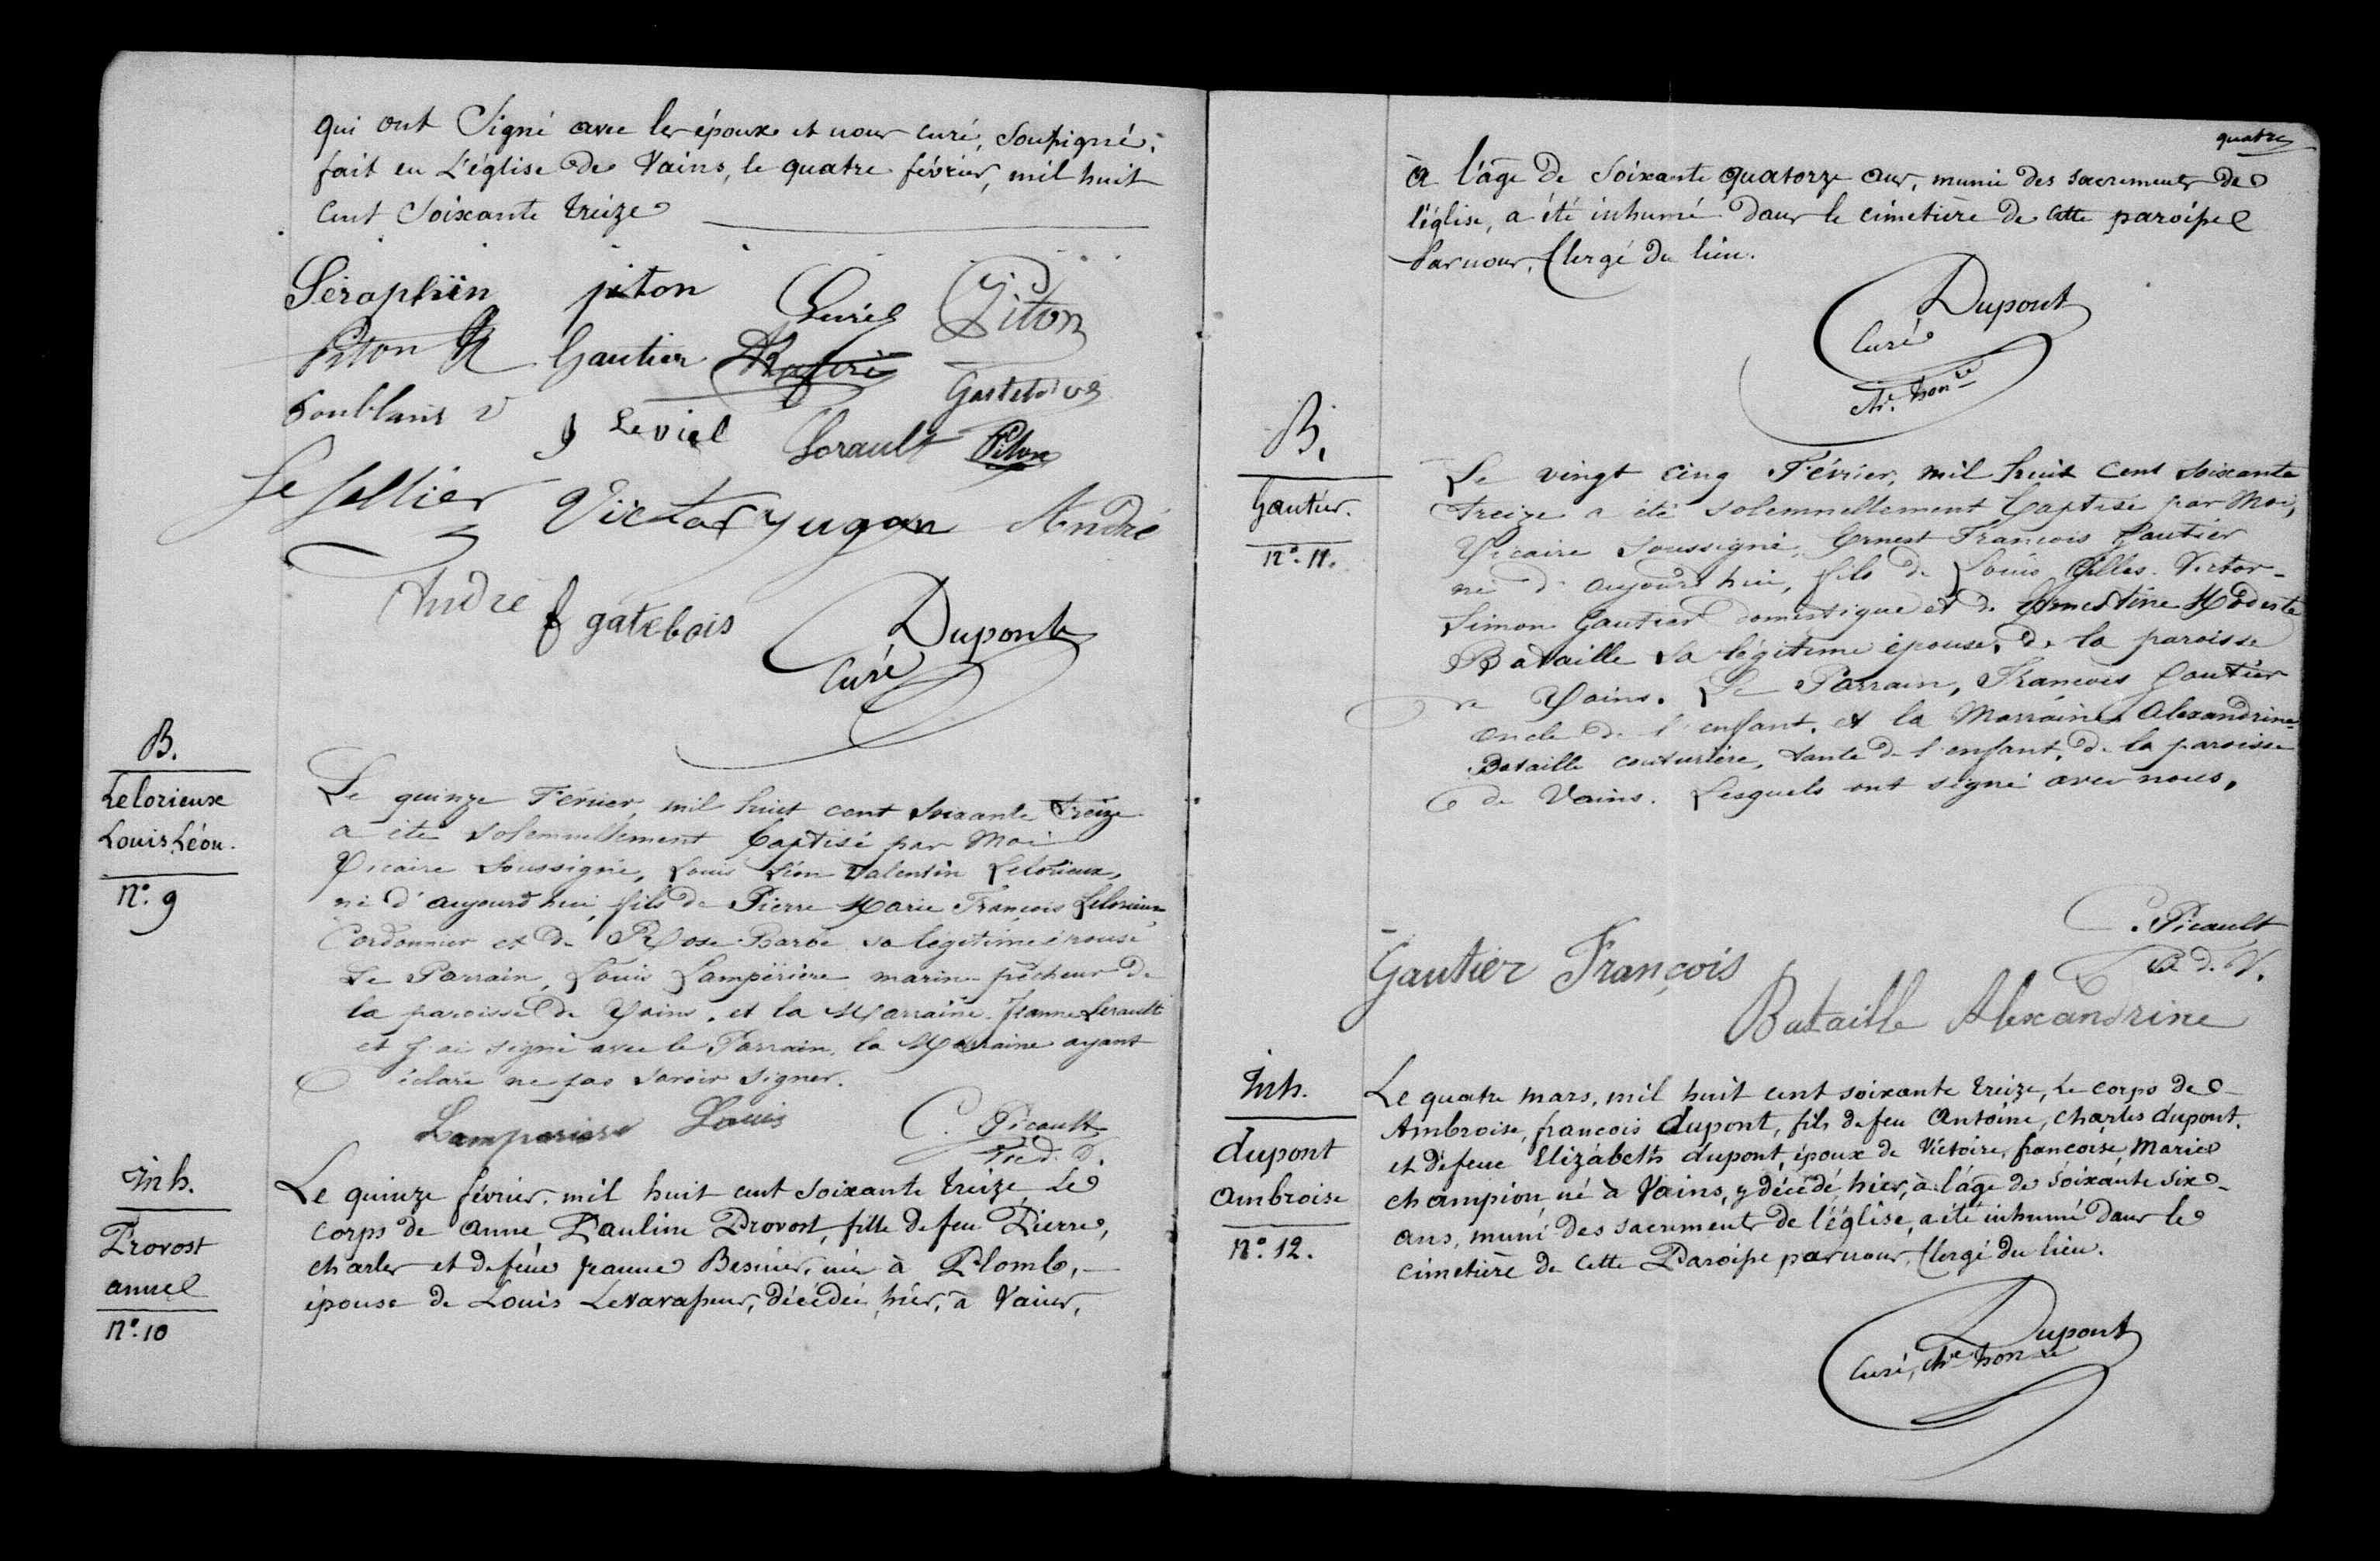 qui ont Signé avec les époux et nous curé, Soussigné,
fait en L'église de Vains, le quatre février, mil huit
cent Soixante treize
Séraphin piton Piton
Piton Gautier
Leviel Lorault Piton
Le Sellier Victor yugon André
André f gatebois Dupont
Curé
B.
Lelorieux
Louis Léon.
N.o 9
Le quinze Février, mil huit cent soixante treize
a été solemnellement baptisé par Moi
Vicaire Soussigné, Louis Léon Valentin Lelorieux,
né d'aujourd'hui, fils de Pierre Marie François Lelorieux
Cordonnier et de Rose Barbé sa légitime épouse
Le Parrain, Louis Lampérière marin-pêcheur de
la paroisse de Vains, et la Marraine Jeanne Lerault
et j'ai signé avec le Parrain, la Marraine ayant
déclaré ne pas savoir signer.
Lamperiere Louis C. Picault
Inh.
Provost
anne
N.o 10
Le quinze février, mil huit cent soixante treize, Le
corps de anne Pauline Provost, fille de feu Pierre,
charles et de feue jeanne Besnier, née à Plomb,
épouse de Louis Levavasseur, décédée, hier, à Vains,
quatre
à l'âge de Soixante quatorze ans, munie des sacrements de
l'église, a été inhumé dans le cimetière de cette paroisse
Par nous, Clergé du lieu.
Dupont
Curé
ch.e hon.re
B.
Gautier.
N.o 11.
Le vingt cinq Février, mil huit cent soixante
treize a été solemnellement baptisé par Moi,
Vicaire soussigné, Ernest François Gautier
né d'aujourd'hui, fils de Louis Gilles Victor-
Simon Gautier domestique et de Ernestine Modeste
Bataille sa légitime épouse, de la paroisse
de Vains. Le Parrain, François Gautier
oncle de l'enfant, et la Marraine Alexandrine
Bataille couturière, tante de l'enfant, de la paroisse
de Vains. Lesquels ont signé avec nous,
C. Picault
Gautier François V. d. V.
Bataille Alexandrine
Inh.
dupont
ambroise
N.o 12.
Le quatre mars, mil huit cent soixante treize, Le corps de
Ambroise, françois dupont, fils de feu Antoine, charles dupont,
et de feue Elizabeth dupont, époux de Victoire, françoise, Marie
champion, né à Vains, y décédé, hier, à l'âge de Soixante six
ans, muni des sacrements de l'église, a été inhumé dans le
cimetière de cette Paroisse par nous, Clergé du lieu.
Dupont
Curé, ch.e hon.re